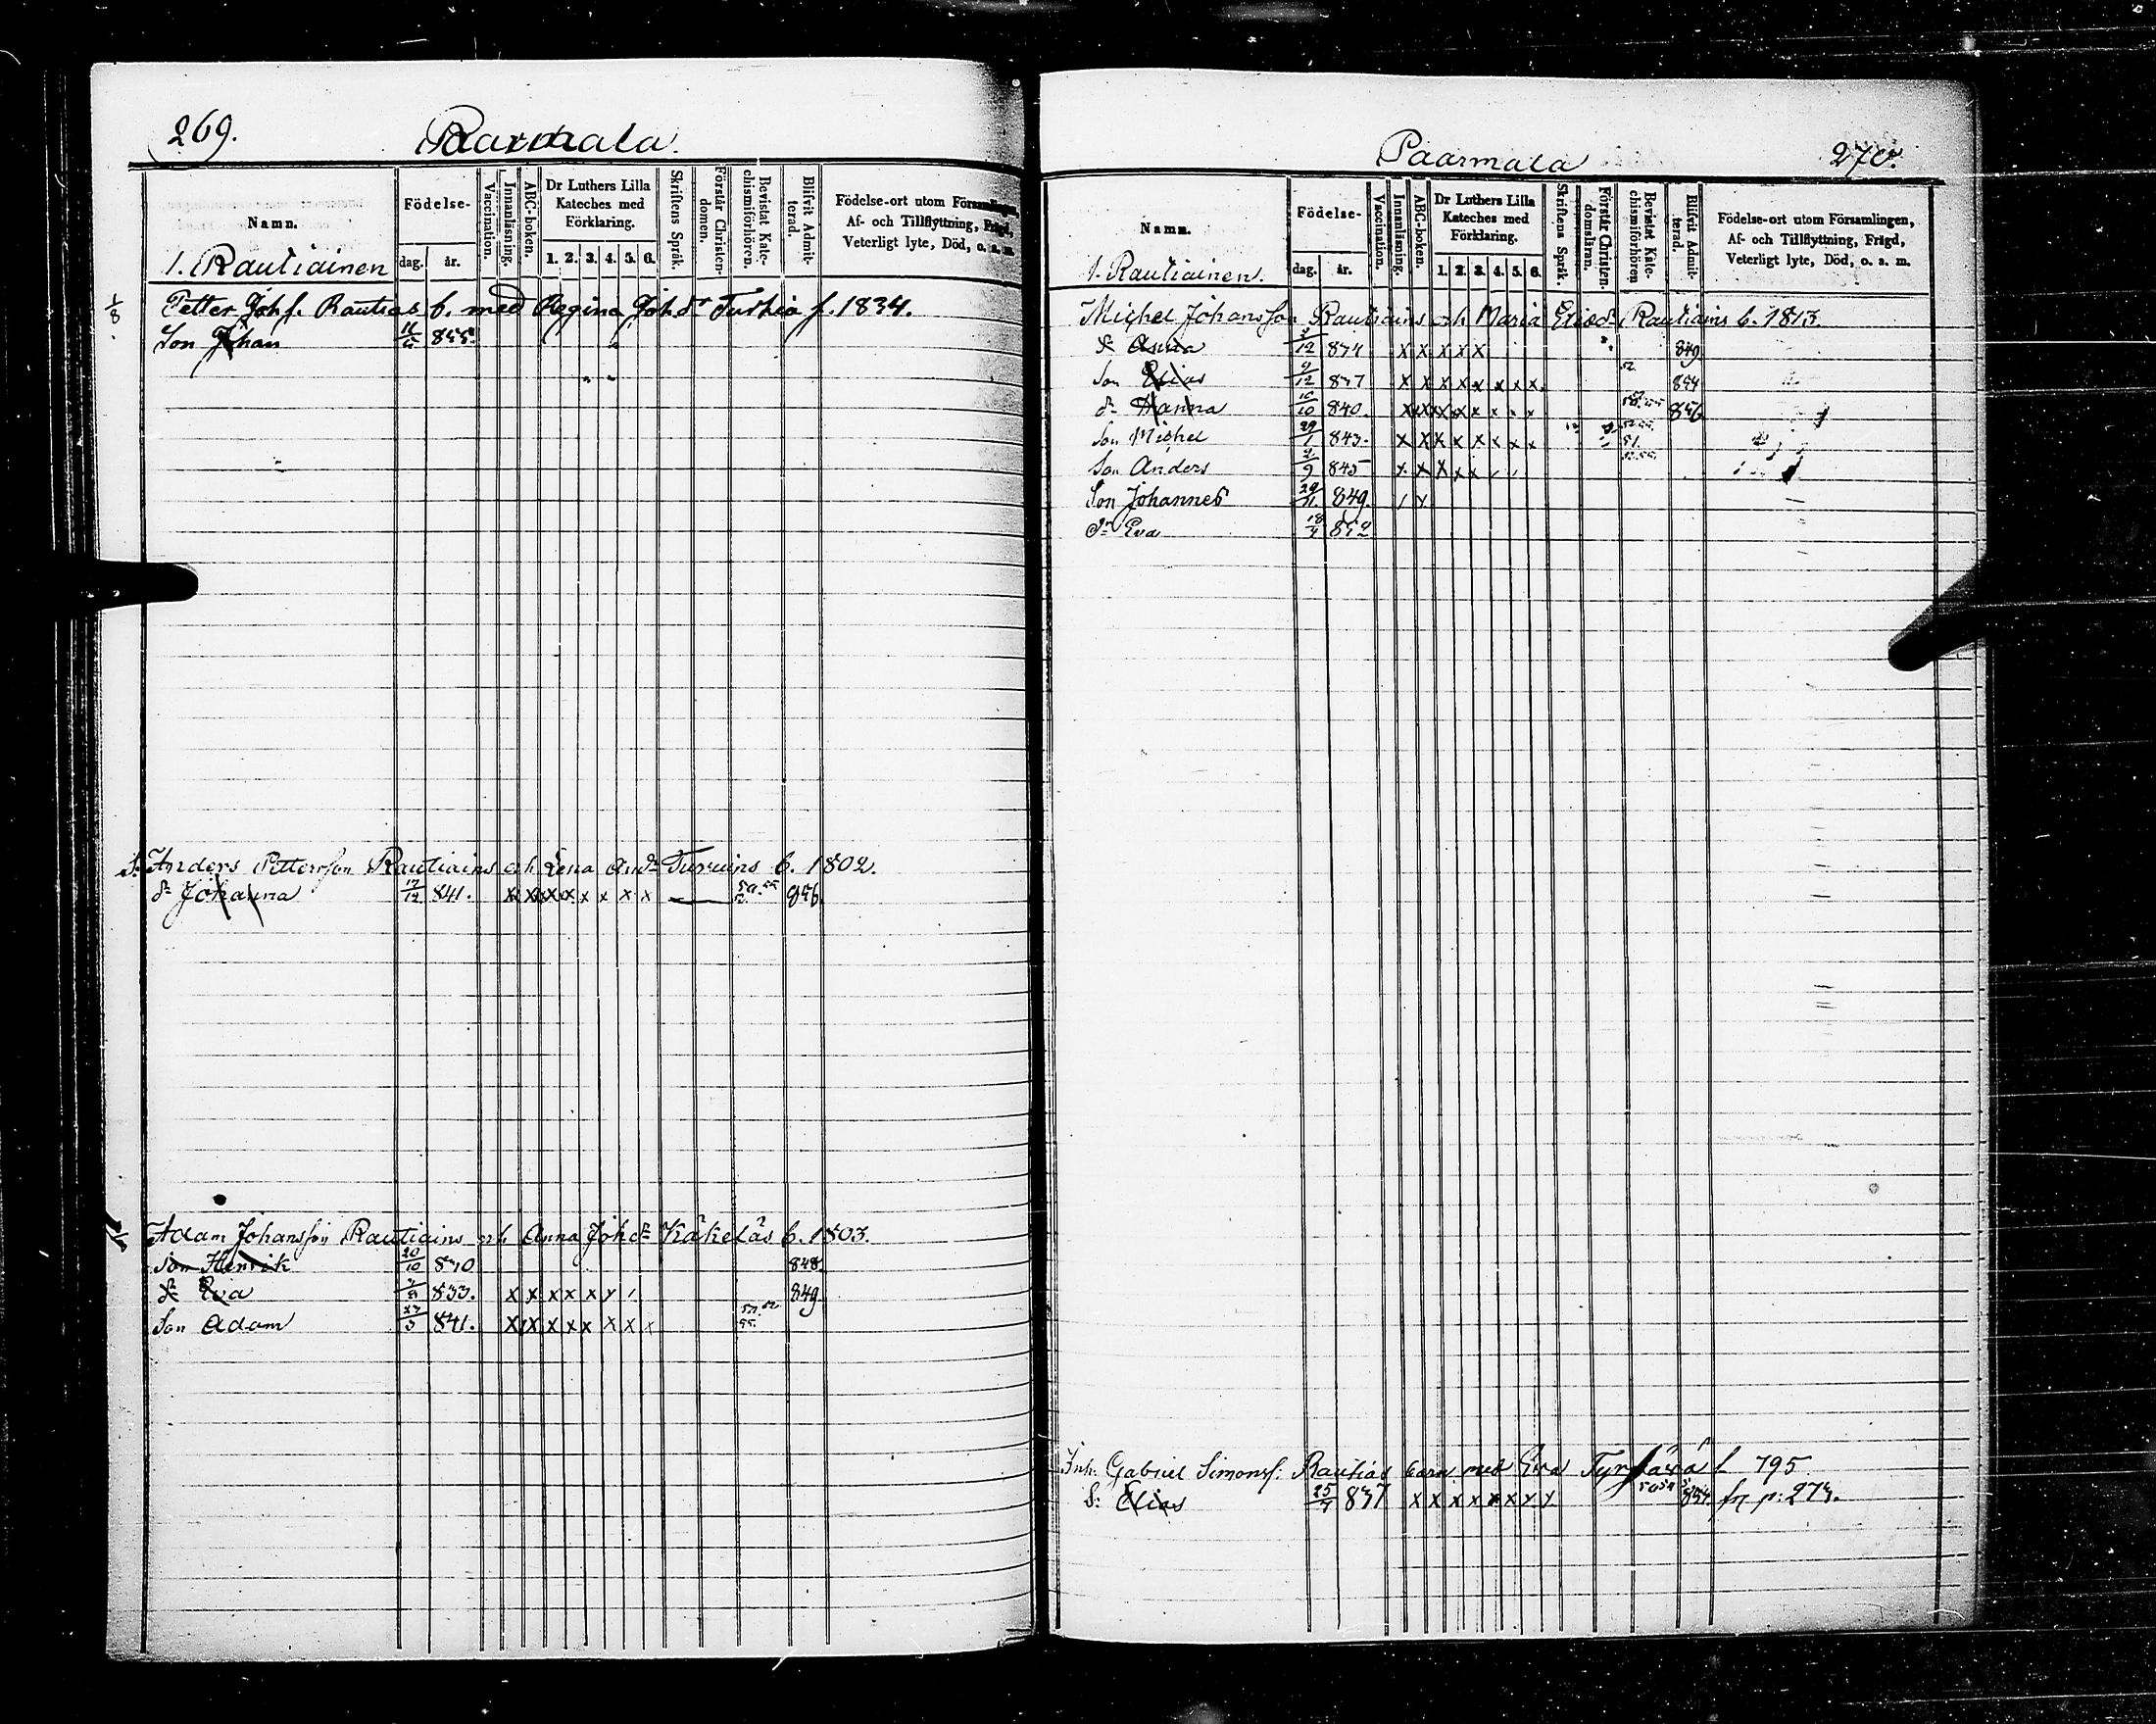 269.
Paarmala.
Namn.
Födelse-
dag. år.
Vaccination.
Innanläsning.
ABC-boken.
Dr Luthers Lilla
Kateches med
Förklaring.
1. 2. 3. 4. 5. 6.
Skriftens Språk.
Förstår Christen-
domen.
Bevistat Kate-
chismiförhören.
Blifvit Admit-
terad.
Födelse-ort utom Församlingen,
Af- och Tillflyttning, Frägd,
Veterligt lyte, Död, o. a. m.
1. Rautiainen
Petter Johs. Rautias b. med Regina Johdr Turkia f. 1834.
Son Johan 855.
S. Anders Pettersson Rautiains och Lena Andr b. 1802.
dr Johanna 17/12 841. x x x x x x x x 856.
Adam Johansson Rautiains och Anna Johdr Käkeläs b. 1803.
Son Henrik 20/10 830 848.
dr Eva 833. x x x x x x 849.
Son Adam 841. x x x x x x x x 55.
Paarmala
270.
Namn.
Födelse-
dag. år.
Vaccination.
Innanläsning.
ABC-boken.
Dr Luthers Lilla
Kateches med
Förklaring.
1. 2. 3. 4. 5. 6.
Skriftens Språk.
Förstår Christen-
domsläran.
Bevistat Kate-
chismiförhören
Blifvit Admit-
terad.
Födelse-ort utom Församlingen,
Af- och Tillflyttning, Frägd,
Veterligt lyte, Död, o. a. m.
1. Rautiainen.
Michel Johansson Rautiains och Maria Ericsdr Rautiains b. 1813.
dr Anna 834 x x x x x 849
Son Elias 837 x x x x x x x x 52. 854
dr Hanna 10/10 840. x x x x x x x x 856
Son Michel 29/1 843. x x x x x x x x 51.
Son Anders 2/9 845 x x x x x
Son Johannes 29/11 849.
dr Eva 18/4 852
Inh. Gabriel Simonss. Rautias barn med Eva f. 795
S. Elias 25/4 837 x x x x x x x x 854 p: 273.